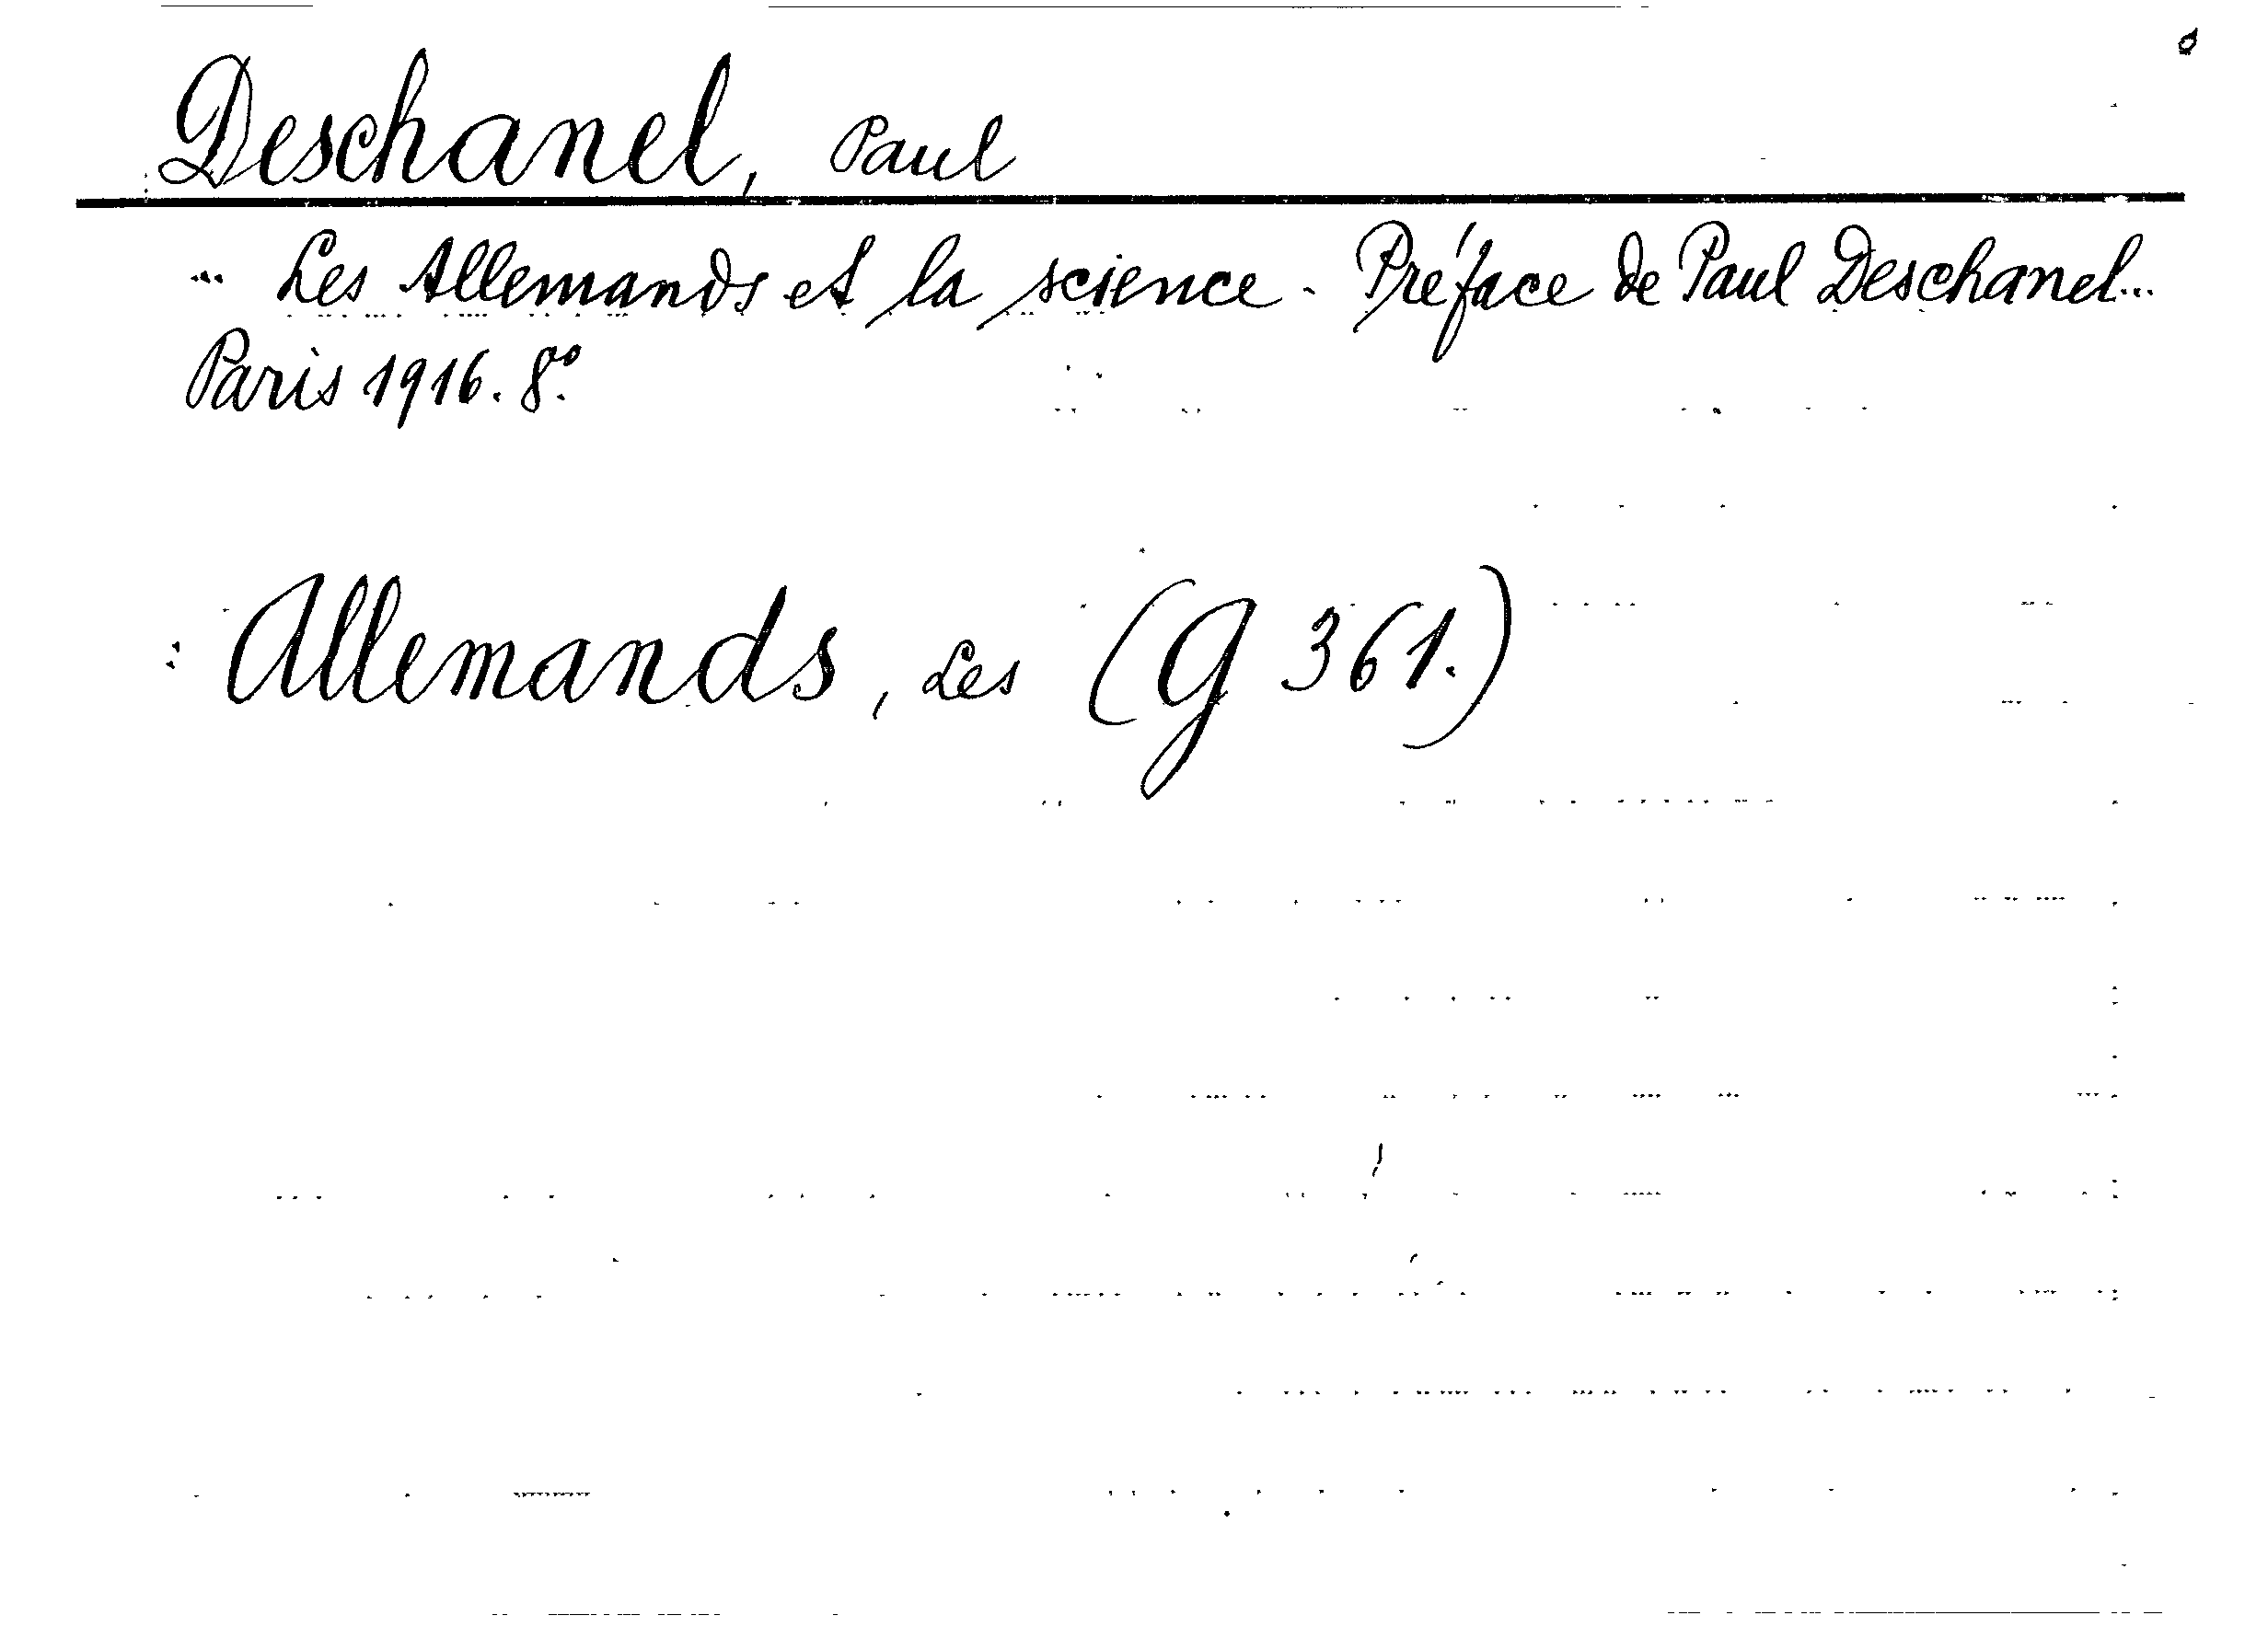 Deschanel, Paul
... Les Allemands et la science - Préface de Paul Deschanel...
Paris 1916. 8°.
: Allemands, Les (G 361.)